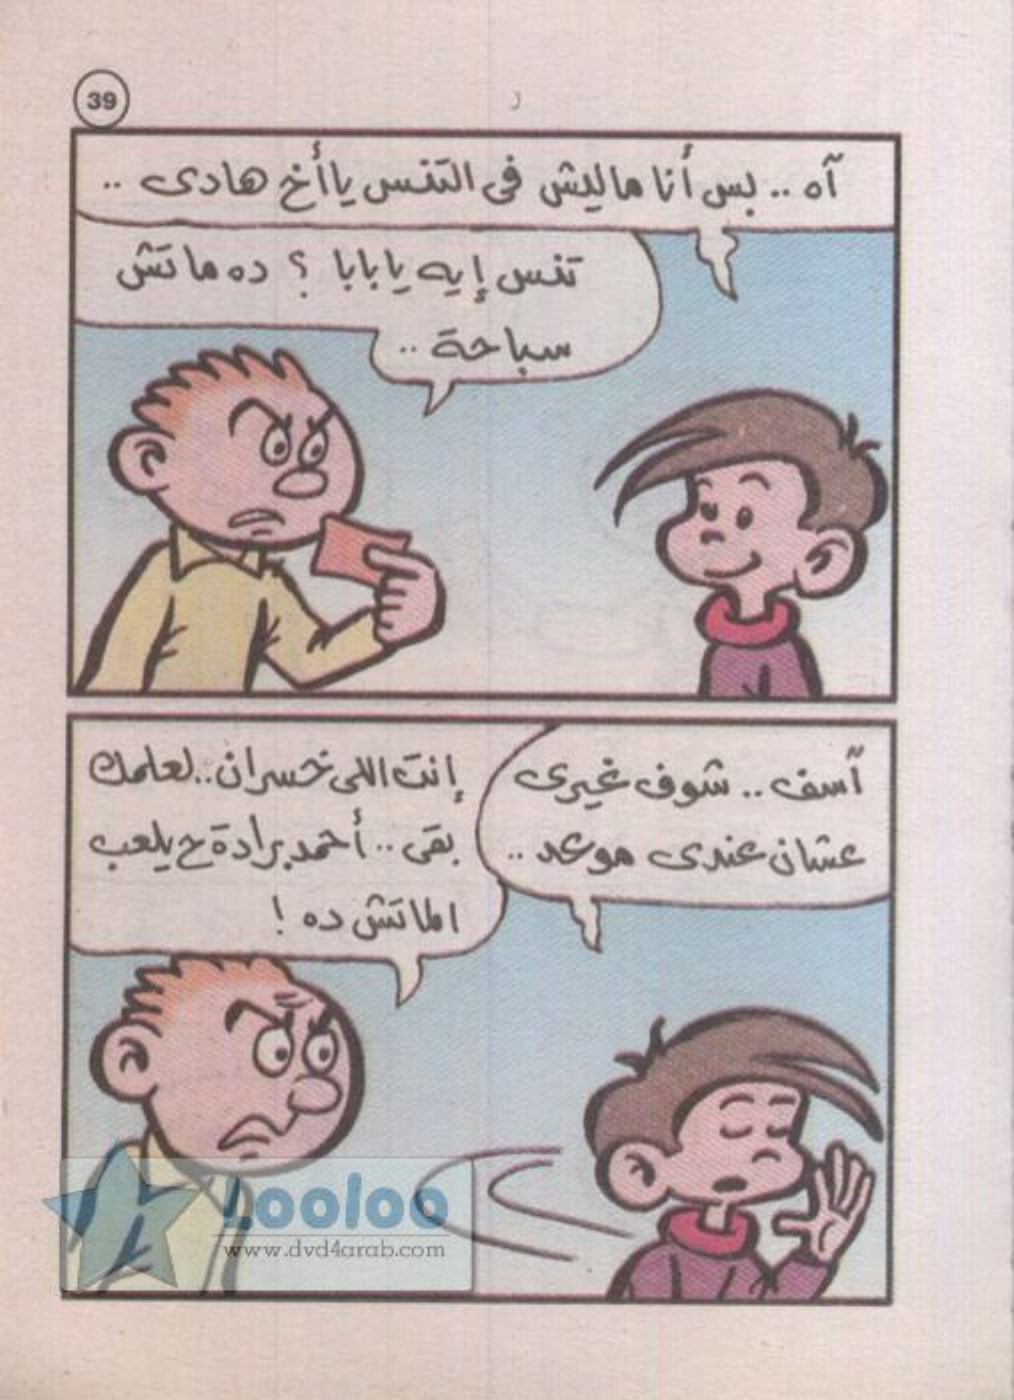 39
آه .. بس أنا ماليش فى التنس يا أخ هادى ..
تنس إيه يا بابا ؟ ده ماتش
سباحة ..
آسف .. شوف غيرى
عشان عندى موعد ..
إنت اللى خسران .. لعلمك
بقى .. أحمد برادة ح يلعب
الماتش ده !
Looloo
www.dvd4arab.com